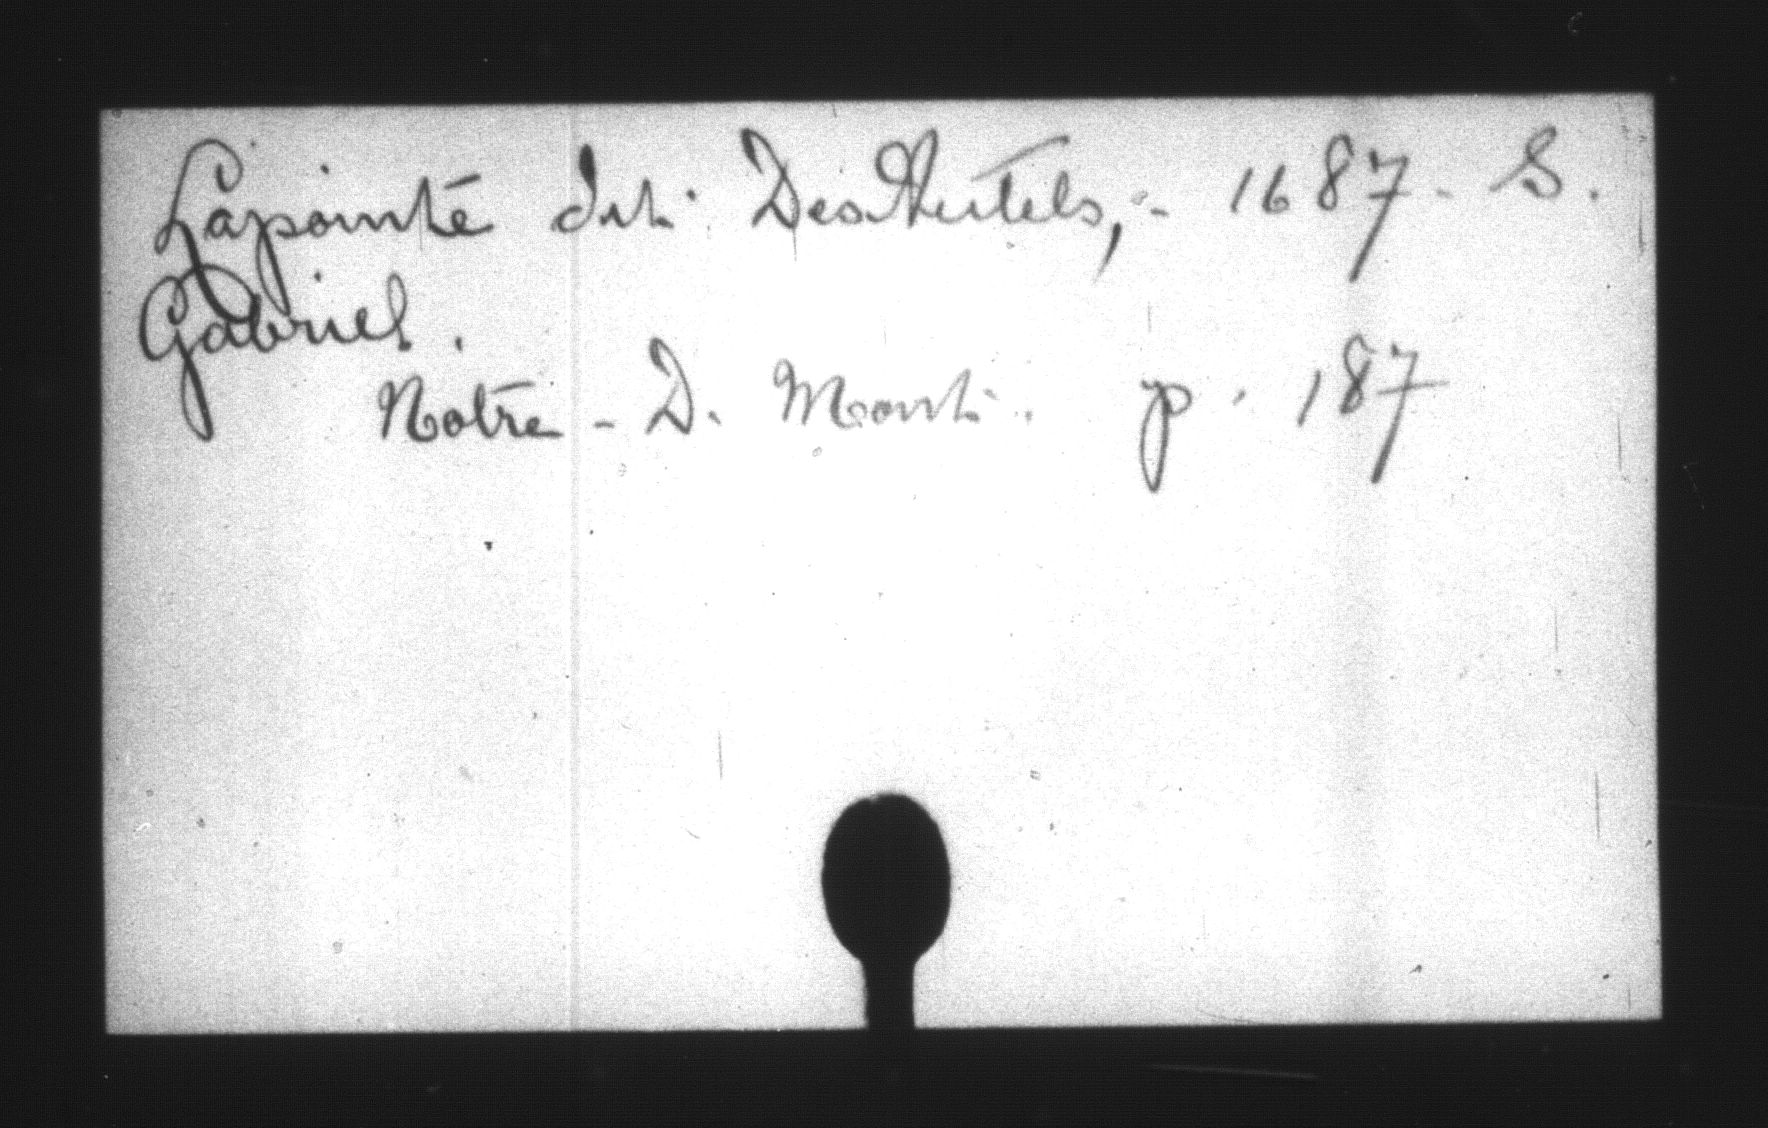 Lapointe dit DesAutels, - 1687 - S.
Gabriel.
Notre - D. Montr. p. 187